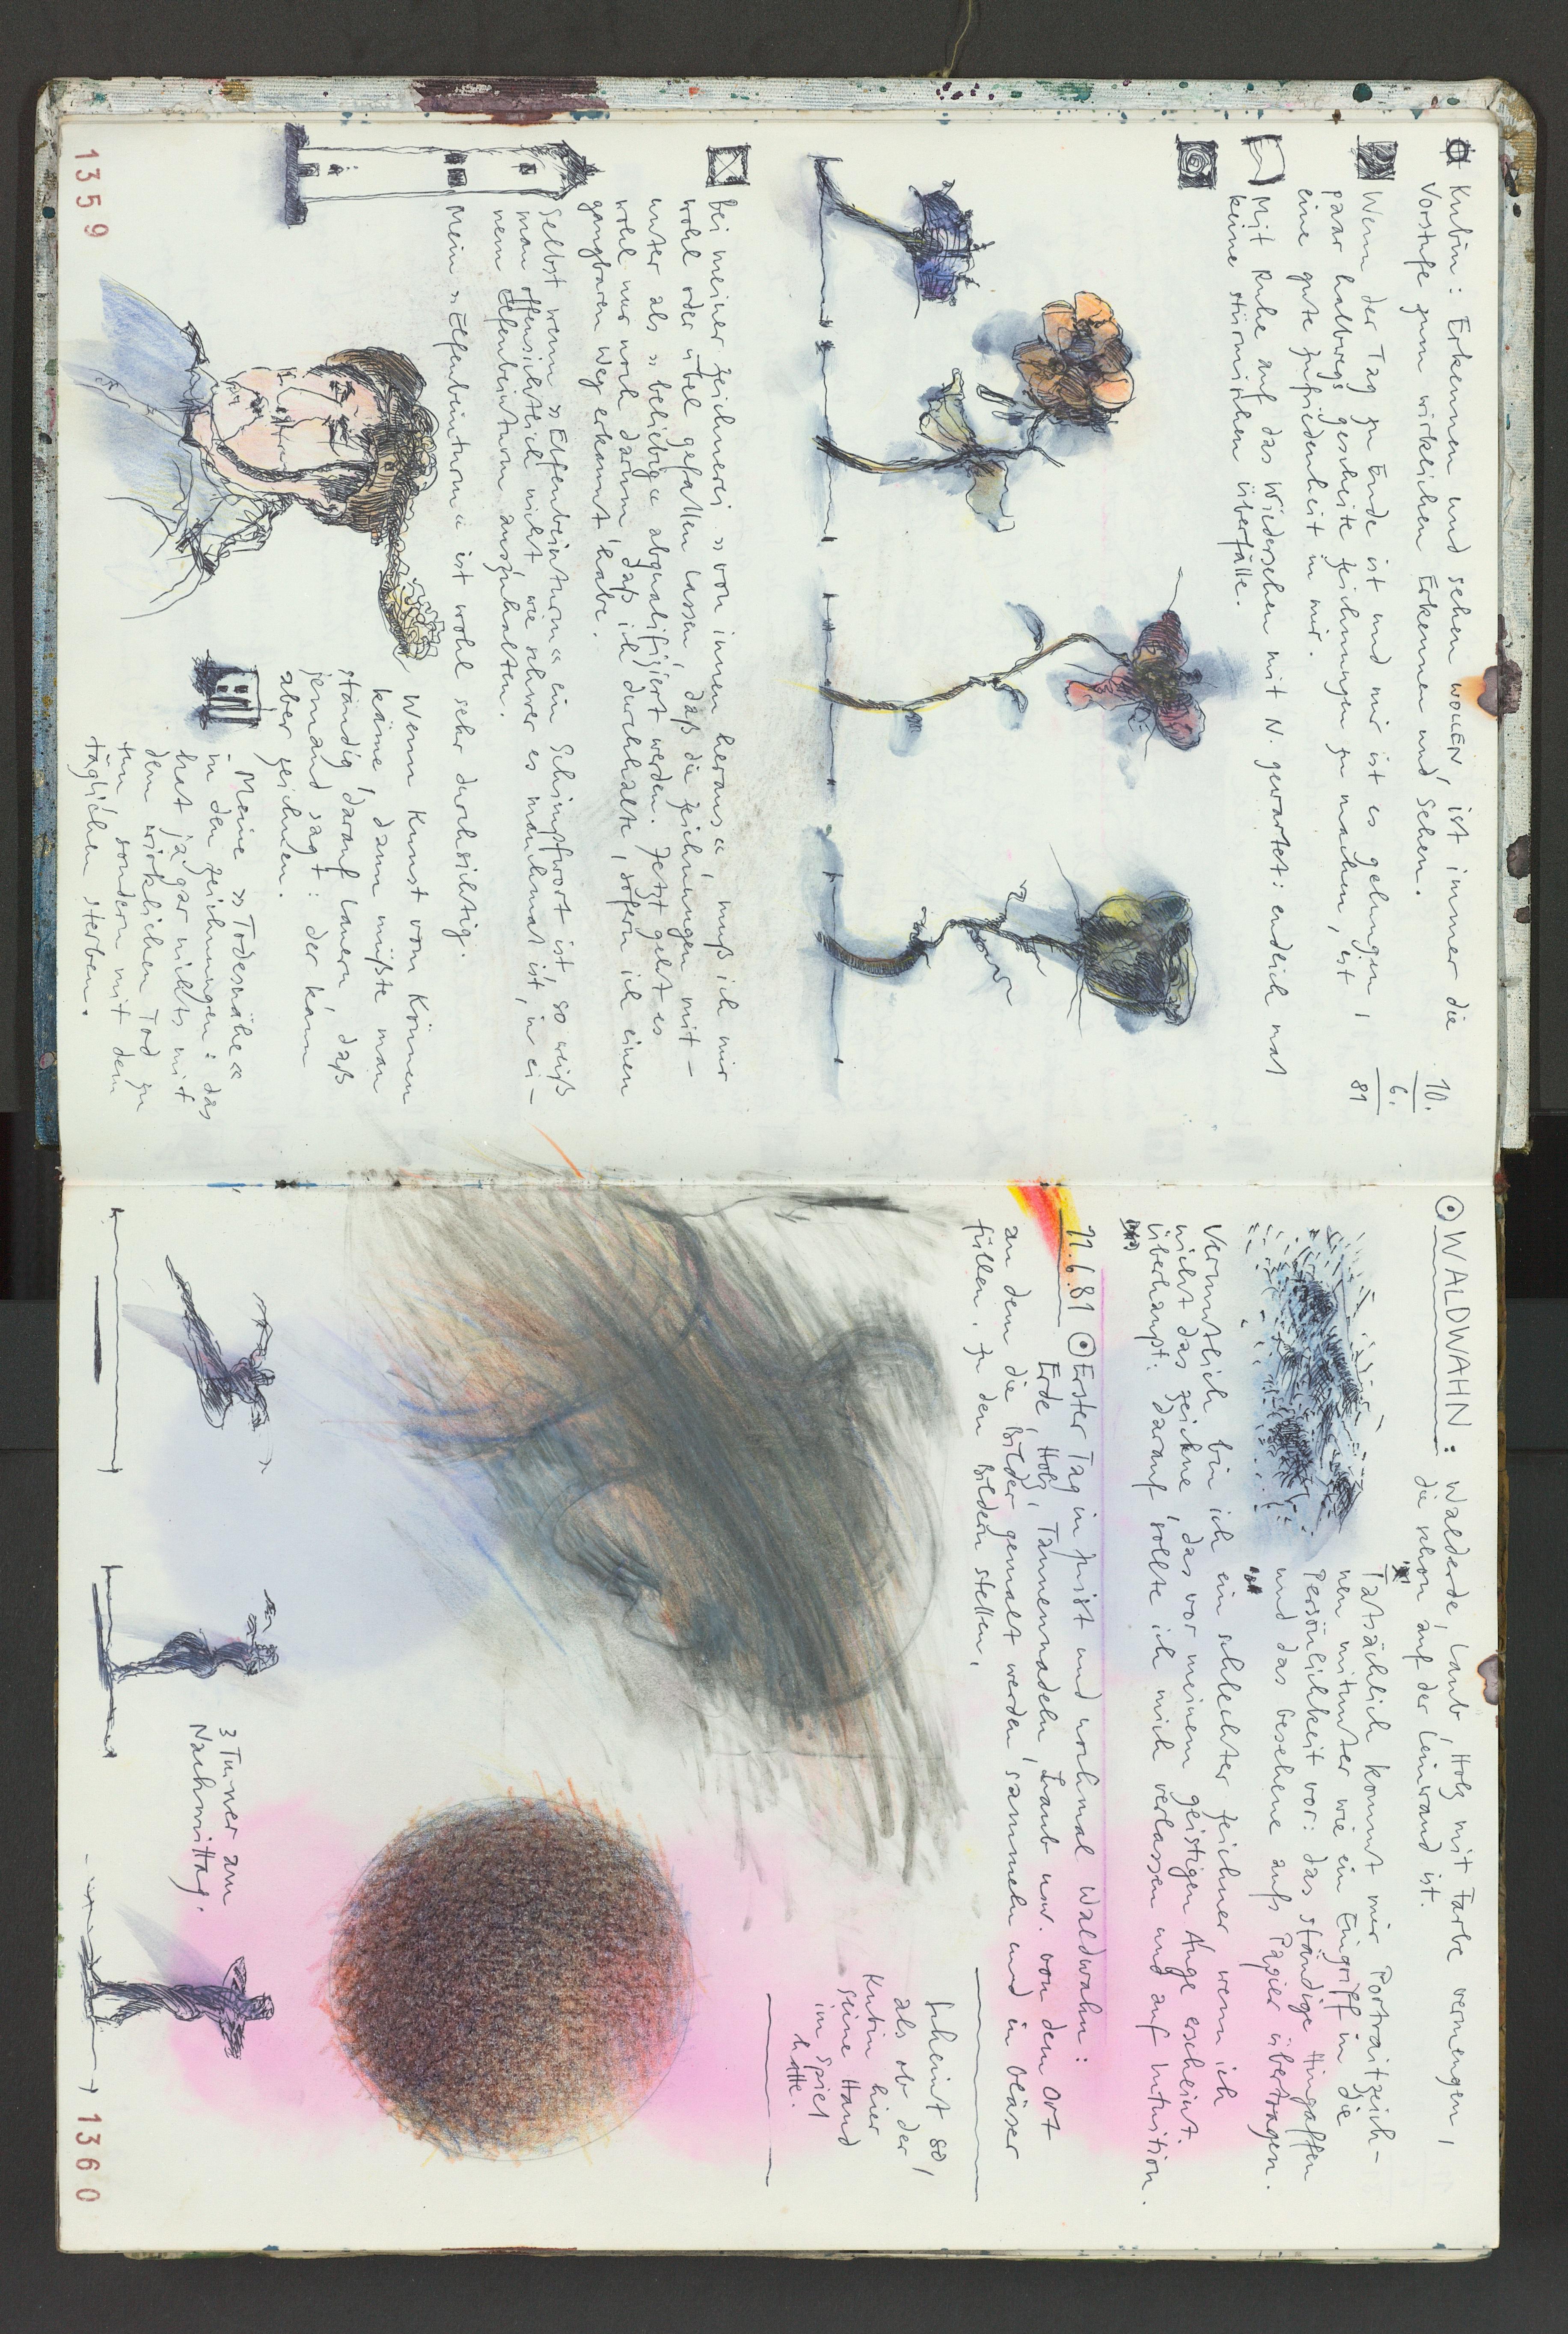 Kubin: Erkennen und sehen WOLLEN, ist immer die
Vorstufe zum wirklichen Erkennen und Sehen.
10.
6.
81
Wenn der Tag zu Ende ist und mir ist es gelungen,
paar halbwegs gescheite Zeichnungen zu machen, ist
eine gute Zufriedenheit in mir.
Mit Ruhe auf das Wiedersehen mit N. gewartet: endlich mal
keine stürmischen Überfälle.
Bei meiner Zeichnerei »von innen heraus«, muß ich mir
wohl oder übel gefallen lassen, daß die Zeichnungen mit-
unter als »beliebig« abqualifiziert werden. Jetzt geht es
wohl nur noch darum, daß ich durchhalte, sofern ich einen
gangbaren Weg erkannt habe.
Selbst wenn »Elfenbeinturm« ein Schimpfwort ist: so weiß
man offensichtlich nicht, wie schwer es manchmal ist, in ei-
nem Elfenbeinturm auszuhalten.
Mein »Elfenbeinturm« ist wohl sehr durchsichtig.
Wenn Kunst von Können
käme, dann müßte man
ständig darauf lauern, daß
jemand sagt: der kann
aber zeichnen.
Meine »Todesnähe«
in den Zeichnungen: das
hat ja gar nichts mit
dem wirklichen Tod zu
tun, sondern mit dem
täglichen Sterben.
1359
WALDWAHN: Walderde, Laub, Holz mit Farbe vermengen,
die schon auf der Leinwand ist.
Tatsächlich kommt mir Portraitzeich-
nen mitunter wie ein Eingriff in die
Persönlichkeit vor: das ständige Hingaffen
und das Gesehene aufs Papier übertragen.
Vermutlich bin ich ein schlechter Zeichner wenn ich
nicht das zeichne, das vor meinem geistigen Auge erscheint.
Überhaupt: darauf sollte ich mich verlassen und auf Intuition.
11.6.81 Erster Tag in Prist und nochmal Waldwahn:
Erde, Holz, Tannennadeln, Laub usw. von dem Ort
an dem die Bilder gemalt werden, sammeln und in Gläser
füllen. Zu den Bildern stellen.
Scheint so,
als ob der
Kubin hier
seine Hand
im Spiel
hätte.
3 Turner am
Nachmittag.
1360